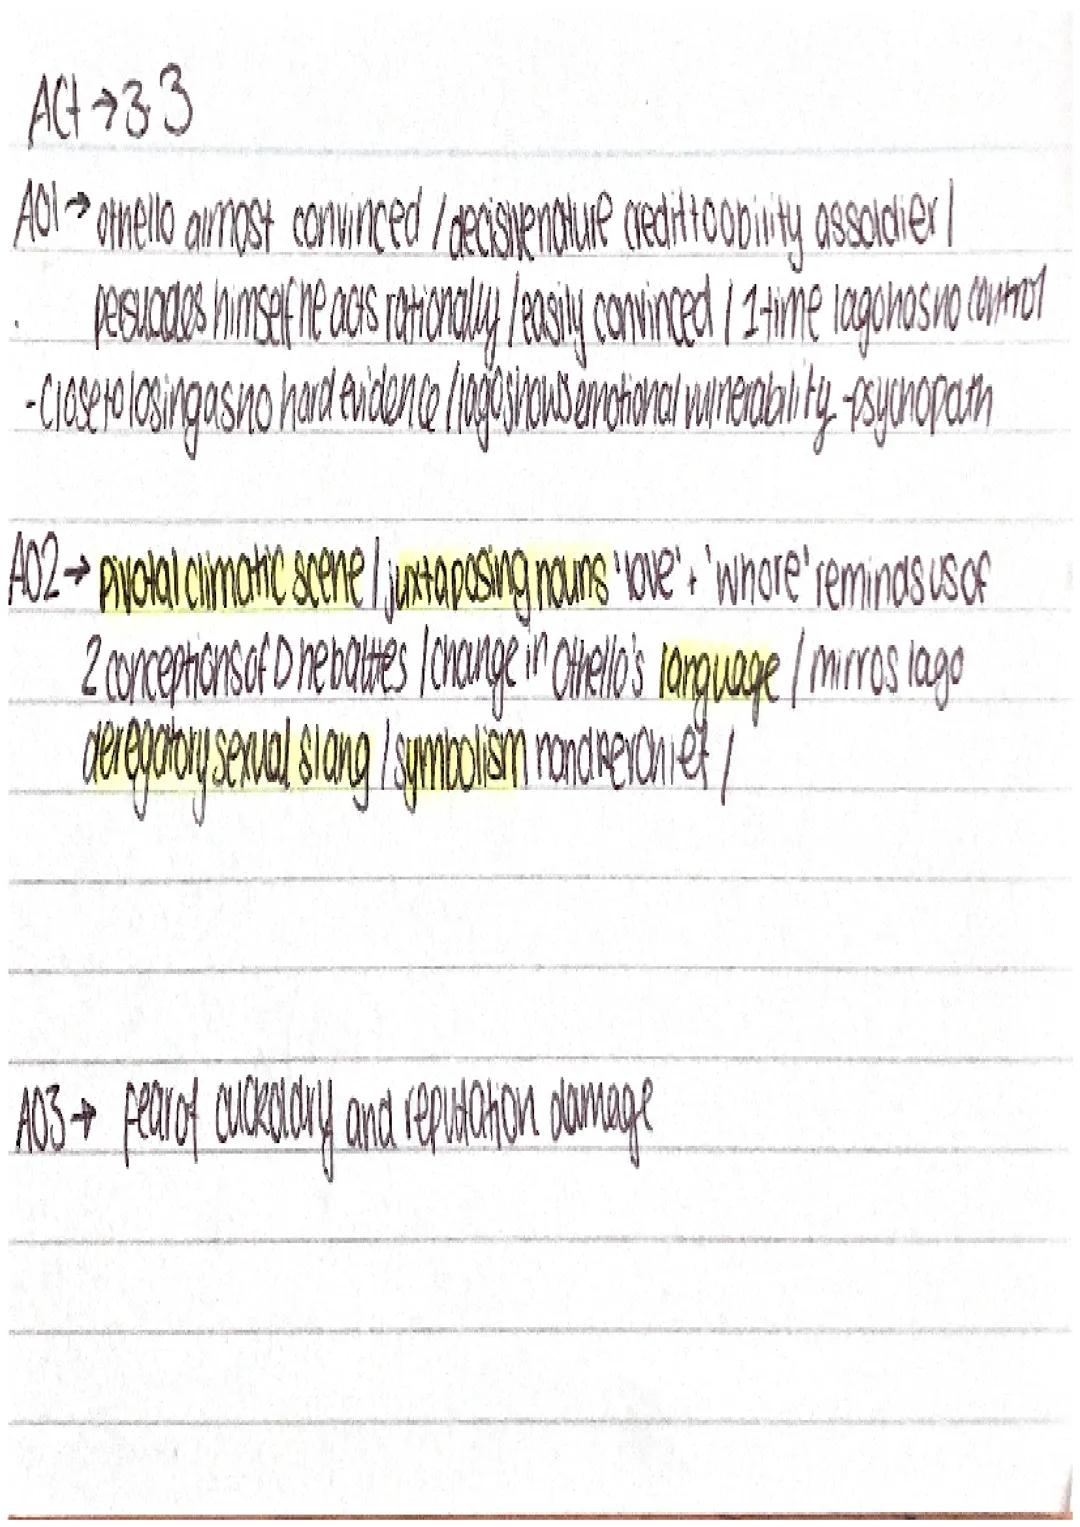 Act → 3.3
AO1 → othello almost convinced / decisive nature credit to ability as soldier /
persuades himself he acts rationally / easily convinced / 1 time Iago has no control
- close to losing as no hard evidence / Iago shows emotional vulnerability - psychopath
AO2 → pivotal climatic scene / juxtaposing nouns 'love' + 'whore' reminds us of
2 conceptions of D he battles / change in Othello's language / mirros Iago
deregatory sexual slang / symbolism handkerchief /
AO3 → fear of cuckoldry and reputation damage